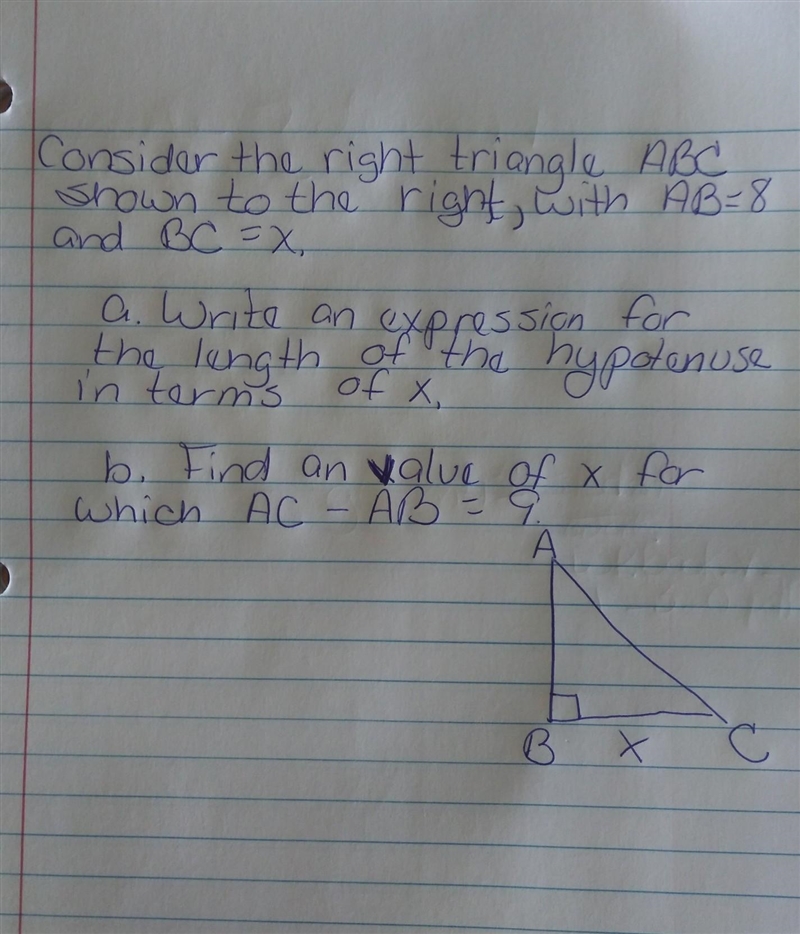 Consider the right triangle ABC
shown to the right, with AB=8
and BC=x.
a. Write an expression for
the length of the hypotenuse
in terms of x.
b. Find an value of x for
which AC - AB = 9.
A
B x C